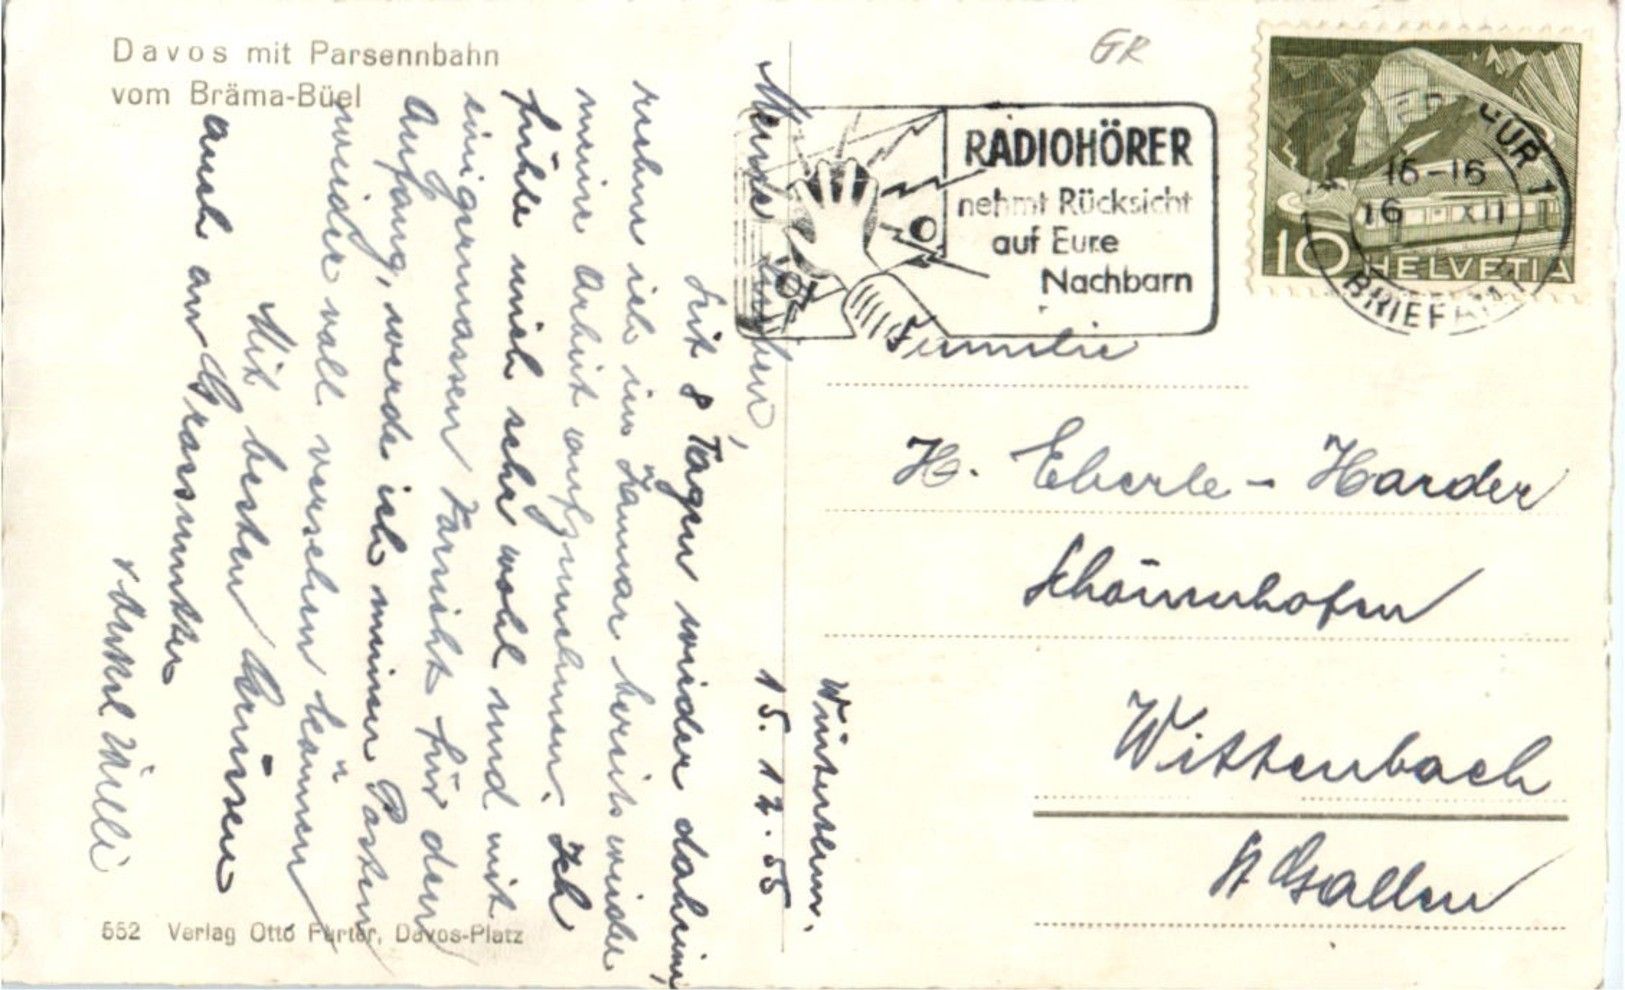 Davos mit Parsennbahn
vom Bräma-Büel
GR
RADIOHÖRER
nehmt Rücksicht
auf Eure
Nachbarn
CUR 1
16-16
16 XII
BRIEFA
10 HELVETIA
Familie
H. Eberle-Harder
Schönenhofen
Wittenbach
St Gallen
Wüstersein,
15.12.55
Meine Lieben,
Seit 8 Tagen wieder daheim,
nehme ich im Januar bereits wieder
meine Arbeit aufgenehmen. Ich
fühle mich sehr wohl und mit
einigermassen Vorsicht für den
Anfang, werde ich meinen Posten
wieder voll versehen können
Mit besten Grüssen
auch an Grossmutter
v. Onkel Willi
552 Verlag Otto Furter, Davos-Platz